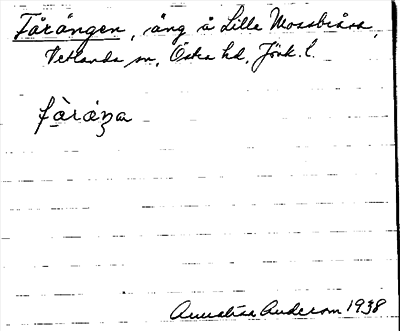 Fårängen, äng å Lilla Mossbråna,
Vetlanda sn, Östra hd, Jönk. l.
fàráŋa
Annalisa Anderson 1938